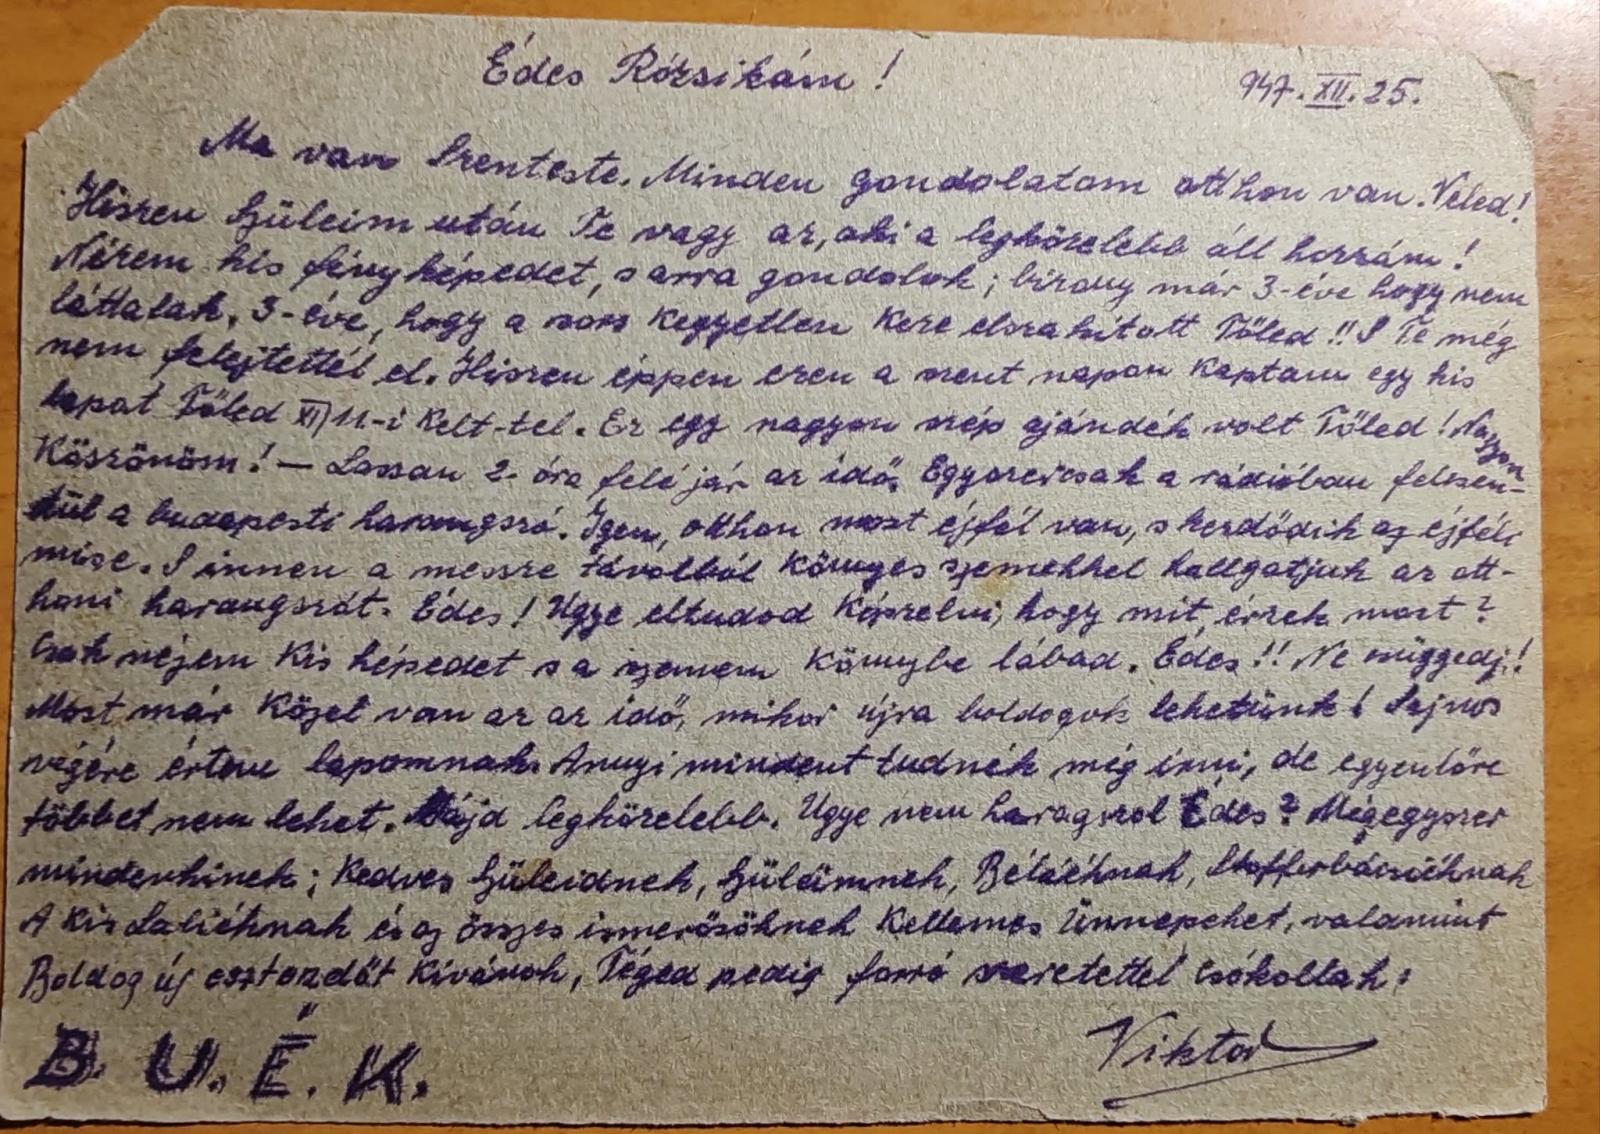 Édes Rózsikám!
947. XII. 25.
Ma van Szenteste. Minden gondolatom otthon van. Veled!
Hiszen Szüleim után Te vagy az, aki a legközelebb áll hozzám!
Nézem kis fényképedet, s arra gondolok; bizony már 3-éve hogy nem
láttalak. 3-éve, hogy a sors kegyetlen keze elszakított Tőled!! S Te még
nem felejtettél el. Hiszen éppen ezen a szent napon kaptam egy kis
lapot Tőled XII/11-i kelt-tel. Ez egy nagyon szép ajándék volt Tőled! Nagyon
Köszönöm! — Lassan 2- óra felé jár az idő. Egyszercsak a rádióban felcsen-
dül a budapesti harangszó. Igen, otthon most éjfél van, s kezdődik az éjféli
mise. S innen a messze távolból könnyes szemekkel hallgatjuk az ott-
honi harangszót. Édes! Ugye eltudod képzelni, hogy mit érzek most?
Csak nézem kis képedet s a szemem könnybe lábad. Édes!! Ne függedj!
Most már közel van az az idő, mikor újra boldogok lehetünk! Sajnos
végére értem lapomnak. Annyi mindent tudnék még írni, de egyenlőre
többet nem lehet. Májd legközelebb. Ugye nem haragszol Édes? Mégegyszer
mindenkinek; Kedves Szüleidnek, Szüleimnek, Béláéknak, Stofferbácsiéknak
A kis Laliéknak és az összes ismerősöknek Kellemes Ünnepeket, valamint
Boldog új esztendőt kívánok, Téged pedig forró szeretettel csókollak:
Viktor
B. U. É. K.